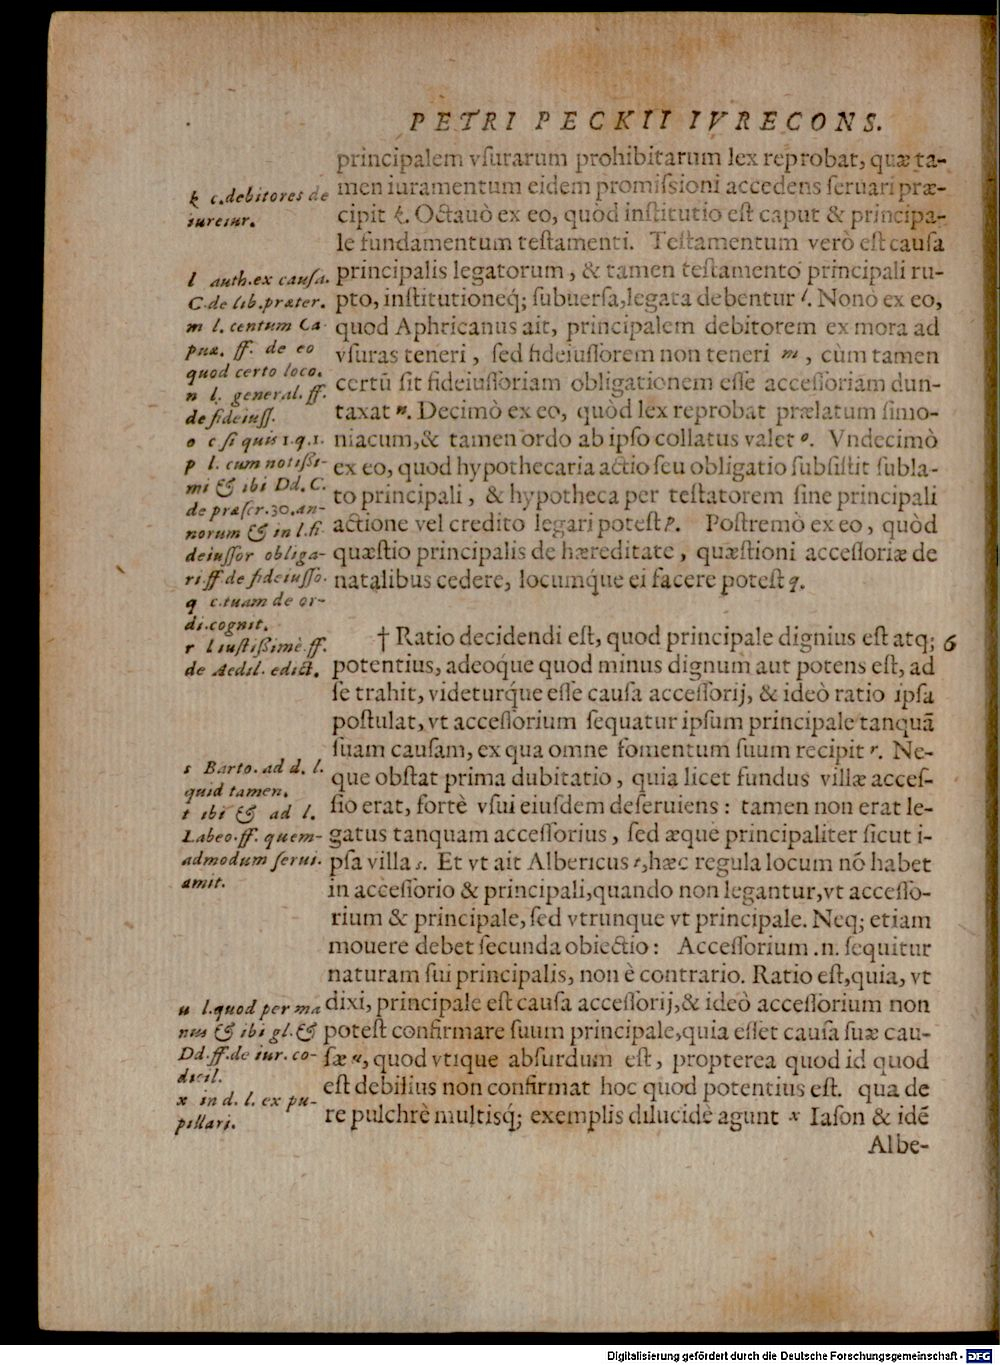 PETRI PECKII IVRECONS.
principalem vſurarum prohibitarum lex reprobat, quæ ta-
men iuramentum eidem promiſsioni accedens ſeruari præ-
cipit k. Octauò ex eo, quòd inſtitutio eſt caput & principa-
le fundamentum teſtamenti. Teſtamentum verò eſt cauſa
principalis legatorum, & tamen teſtamento principali ru-
pto, inſtitutioneq; ſubuerſa, legata debentur l. Nonò ex eo,
quod Aphricanus ait, principalem debitorem ex mora ad
vſuras teneri, ſed fideiuſſorem non teneri m, cùm tamen
certũ ſit fideiuſſoriam obligationem eſſe acceſſoriam dun-
taxat n. Decimò ex eo, quòd lex reprobat prælatum ſimo-
niacum, & tamen ordo ab ipſo collatus valet o. Vndecimò
ex eo, quod hypothecaria actio ſeu obligatio ſubſiſtit ſubla-
to principali, & hypotheca per teſtatorem ſine principali
actione vel credito legari poteſt p. Poſtremò ex eo, quòd
quæſtio principalis de hæreditate, quæſtioni acceſſoriæ de
natalibus cedere, locumq́ue ei facere poteſt q.
† Ratio decidendi eſt, quod principale dignius eſt atq; 6
potentius, adeoque quod minus dignum aut potens eſt, ad
ſe trahit, videturq́ue eſſe cauſa acceſſorij, & ideò ratio ipſa
poſtulat, vt acceſſorium ſequatur ipſum principale tanquã
ſuam cauſam, ex qua omne fomentum ſuum recipit r. Ne-
que obſtat prima dubitatio, quia licet fundus villæ acceſ-
ſio erat, fortè vſui eiuſdem deſeruiens: tamen non erat le-
gatus tanquam acceſſorius, ſed æque principaliter ſicut i-
pſa villa s. Et vt ait Albericus t, hæc regula locum nõ habet
in acceſſorio & principali, quando non legantur, vt acceſſo-
rium & principale, ſed vtrunque vt principale. Neq; etiam
mouere debet ſecunda obiectio: Acceſſorium .n. ſequitur
naturam ſui principalis, non è contrario. Ratio eſt, quia, vt
dixi, principale eſt cauſa acceſſorij, & ideò acceſſorium non
poteſt confirmare ſuum principale, quia eſſet cauſa ſuæ cau-
ſæ u, quod vtique abſurdum eſt, propterea quod id quod
eſt debilius non confirmat hoc quod potentius eſt. qua de
re pulchrè multisq́; exemplis dilucidè agunt x Iaſon & idẽ
Albe-
k c. debitores de
iureiur.
l auth. ex cauſa.
C. de lib. præter.
m l. centum Ca
puæ. ff. de eo
quod certo loco.
n l. general. ff.
de fideiuſſ.
o c ſi quis 1. q. 1.
p l. cum notißi-
mi & ibi Dd. C.
de præſcr. 30. an-
norum & in l. fi
deiuſſor obliga-
ri. ff de fideiuſſo.
q c. tuam de or-
di. cognit.
r l iuſtißimè ff.
de Aedil. edict.
s Barto. ad d. l.
quid tamen.
t ibi & ad l.
Labeo. ff. quem-
admodum ſerui.
amit.
u l. quod per ma
nus & ibi gl. &
Dd. ff. de iur. co-
dicil.
x in d. l. ex pu-
pillari.
Digitalisierung gefördert durch die Deutsche Forschungsgemeinschaft - DFG